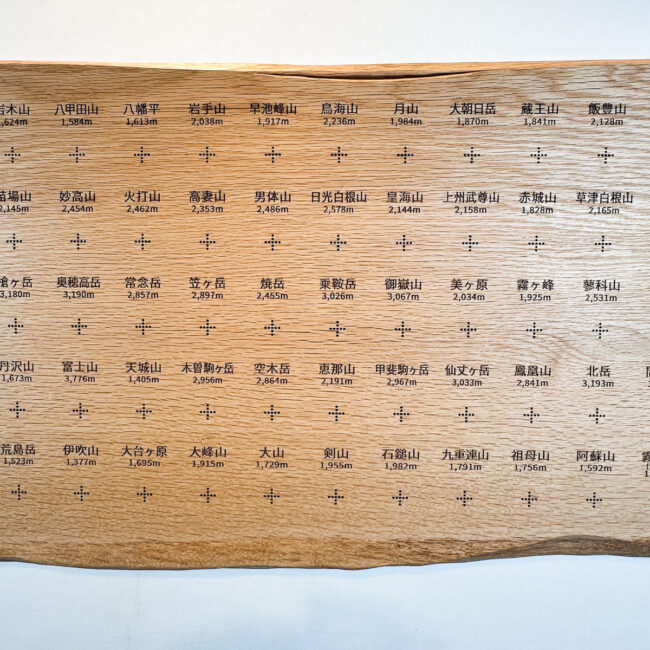 岩木山 八甲田山 八幡平 岩手山 早池峰山 鳥海山 月山 大朝日岳 蔵王山 飯豊山
1,624m 1,584m 1,613m 2,038m 1,917m 2,236m 1,984m 1,870m 1,841m 2,128m
苗場山 妙高山 火打山 高妻山 男体山 日光白根山 皇海山 上州武尊山 赤城山 草津白根山
2,145m 2,454m 2,462m 2,353m 2,486m 2,578m 2,144m 2,158m 1,828m 2,165m
槍ヶ岳 奥穂高岳 常念岳 笠ヶ岳 焼岳 乗鞍岳 御嶽山 美ヶ原 霧ヶ峰 蓼科山
3,180m 3,190m 2,857m 2,897m 2,455m 3,026m 3,067m 2,034m 1,925m 2,531m
丹沢山 富士山 天城山 木曽駒ヶ岳 空木岳 恵那山 甲斐駒ヶ岳 仙丈ヶ岳 鳳凰山 北岳
1,673m 3,776m 1,405m 2,956m 2,864m 2,191m 2,967m 3,033m 2,841m 3,193m
荒島岳 伊吹山 大台ヶ原 大峰山 大山 剣山 石鎚山 九重連山 祖母山 阿蘇山 霧
1,523m 1,377m 1,695m 1,915m 1,729m 1,955m 1,982m 1,791m 1,756m 1,592m